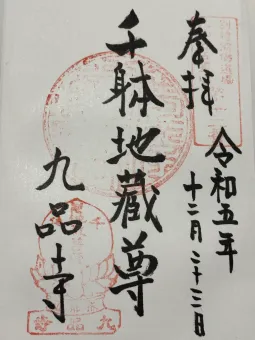 奉拝
令和五年
十二月二十三日
千躰地蔵尊
九品寺
九品寺